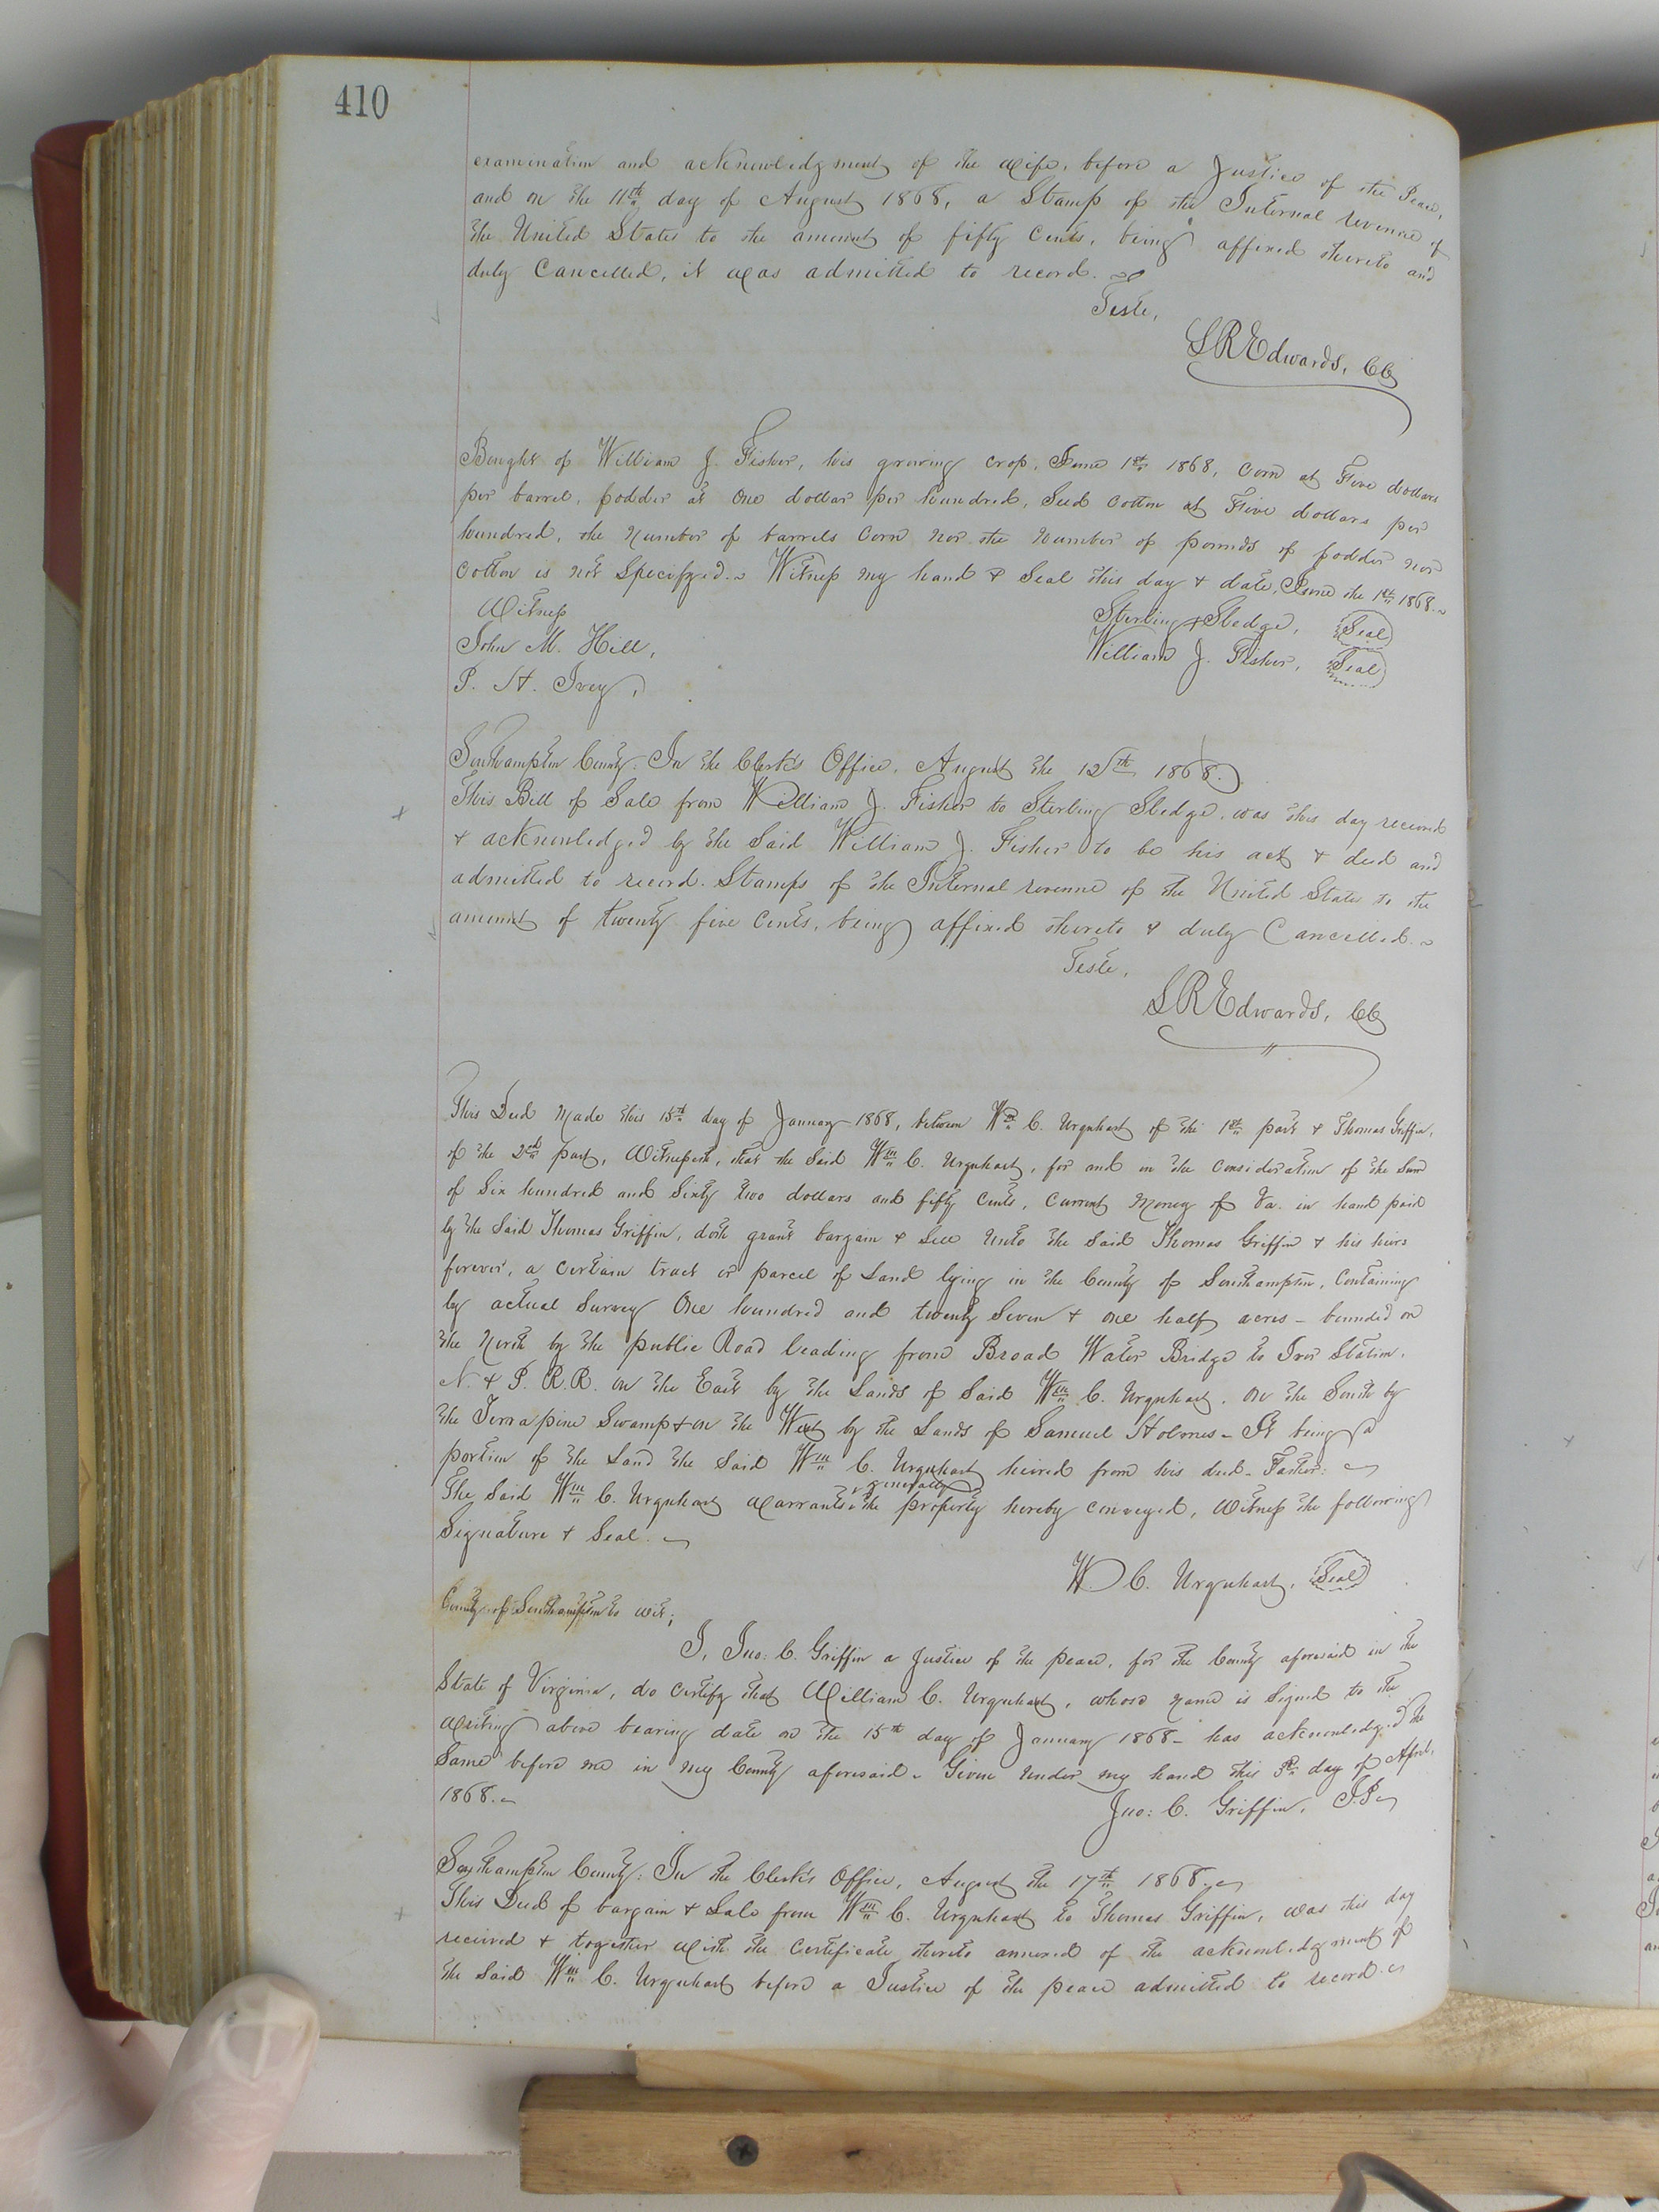 410
examination and acknowledgment of the wife, before a Justice of the Peace,
and on the 11th day of August 1868, a Stamp of the Internal revenue of
the United States to the amount of fifty Cents, being affixed thereto and
duly Cancelled, it was admitted to record.
Teste,
L R Edwards, CC
Bought of William J. Fisher, his growing crop, June 1st 1868, Corn at Five dollars
per barrel, fodder at One dollar per hundred, Seed Cotton at Five dollars per
hundred, the Number of barrels Corn nor the Number of pounds of fodder nor
Cotton is not Specifyed. Witness my hand & Seal this day & date, June the 1st 1868.
Witness
Sterling Sledge, Seal
John M. Hill,
William J. Fisher, Seal
P. H. Ivey,
Southampton County: In the Clerk's Office, August the 12th 1868.
This Bill of Sale from William J. Fisher to Sterling Sledge, was this day received
& acknowledged by the Said William J. Fisher to be his act & deed and
admitted to record. Stamps of the Internal revenue of the United States to the
amount of twenty five Cents, being affixed thereto & duly Cancelled.
Teste,
L R Edwards, CC
This Deed Made this 15th day of January 1868, between Wm C. Urquhart of the 1st part & Thomas Griffin,
of the 2nd Part, Witnesseth, that the Said Wm C. Urquhart, for and in the Consideration of the Sum
of Six hundred and Sixty two dollars and fifty Cents, Current Money of Va. in hand paid
by the Said Thomas Griffin, doth grant bargain & Sell Unto the Said Thomas Griffin & his heirs
forever, a Certain tract or parcel of Land lying in the County of Southampton, Containing
by actual Survey One hundred and twenty Seven & one half acres - bounded on
the North by the public Road leading from Broad Water Bridge to Ivor Station,
N. & P. R.R. on the East by the Lands of Said Wm C. Urquhart, on the South by
the Terrapine Swamp & on the West by the Lands of Samuel Holomes - It being a
portion of the Land the Said Wm C. Urquhart heired from his decd. Father:
generally
The Said Wm C. Urquhart Warrants the property hereby conveyed, Witness the following
Signature & Seal.
W C. Urquhart, Seal
County of Southampton to wit;
I, Jno: C. Griffin a Justice of the peace, for the County aforesaid in the
State of Virginia, do Certify that William C. Urquhart, whose Name is Signed to the
Writing above bearing date on the 15th day of January 1868 - has acknowledged the
Same before me in my County aforesaid. Given Under my hand this day of April,
1868.
Jno: C. Griffin, J.P.
Southampton County: In the Clerk's Office, August the 17th 1868.
This Deed of bargain & Sale from Wm C. Urquhart to Thomas Griffin, was this day
received & together with the Certificate thereto annexed of the acknowledgment of
the Said Wm C. Urquhart before a Justice of the peace admitted to record.